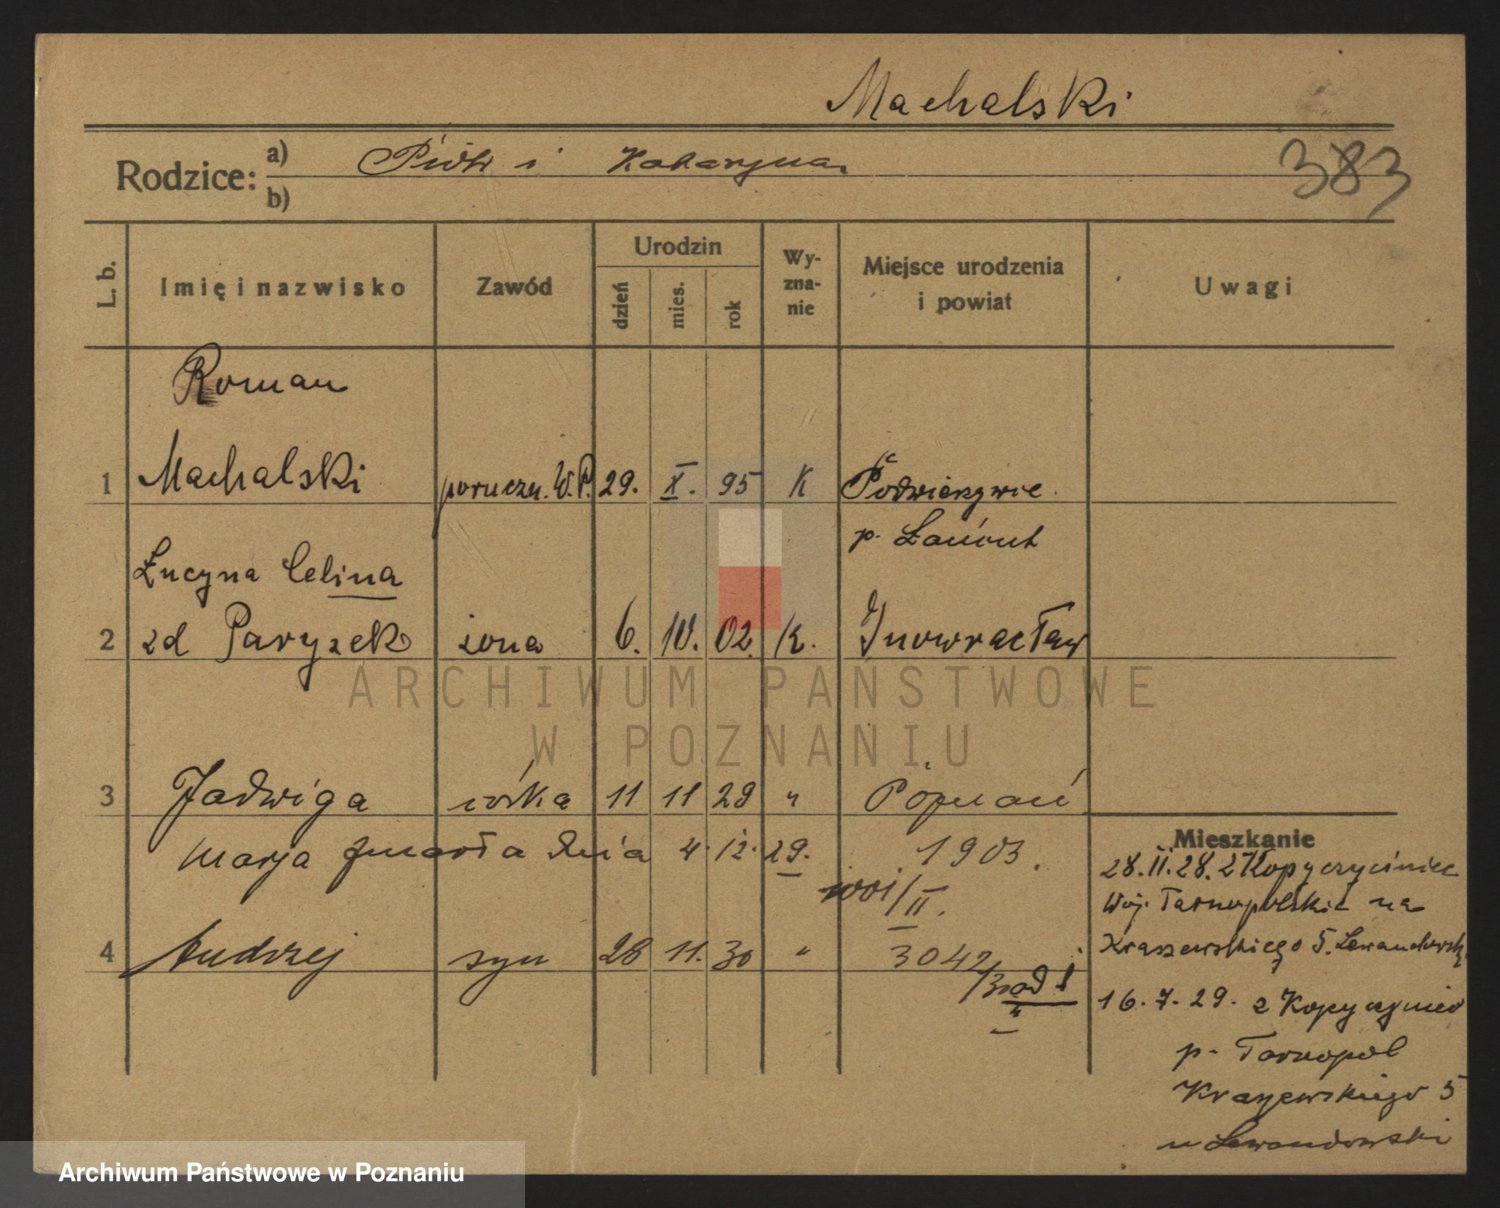 Machalski
383
Rodzice: a) Piotr i Katarzyna
b)
L. b. Imię i nazwisko Zawód Urodzin dzień mies. rok Wy-zna-nie Miejsce urodzenia i powiat Uwagi
Roman
1 Machalski poruczn. W.P. 29. X. 95 K
p. Łańcut
Łucyna Celina
2 zd Paryzek żona 6. 10. 02. K. Inowrocław
3 Jadwiga córka 11 11 29 " Poznań
Marja zmarła dnia 4. 12. 29. 1903.
Mieszkanie
28. II. 28. z Kopyczyniec
woj. Tarnopolskie na
/II.
Kraszewskiego 5. Lewandowski
4 Andrzej syn 28 11. 30 " 3042
/30 od 1
"
16. 7. 29. z Kopyczyniec
p. Tarnopol
Kraszewskiego 5
u Lewandowski
ARCHIWUM PAŃSTWOWE
W POZNANIU
Archiwum Państwowe w Poznaniu